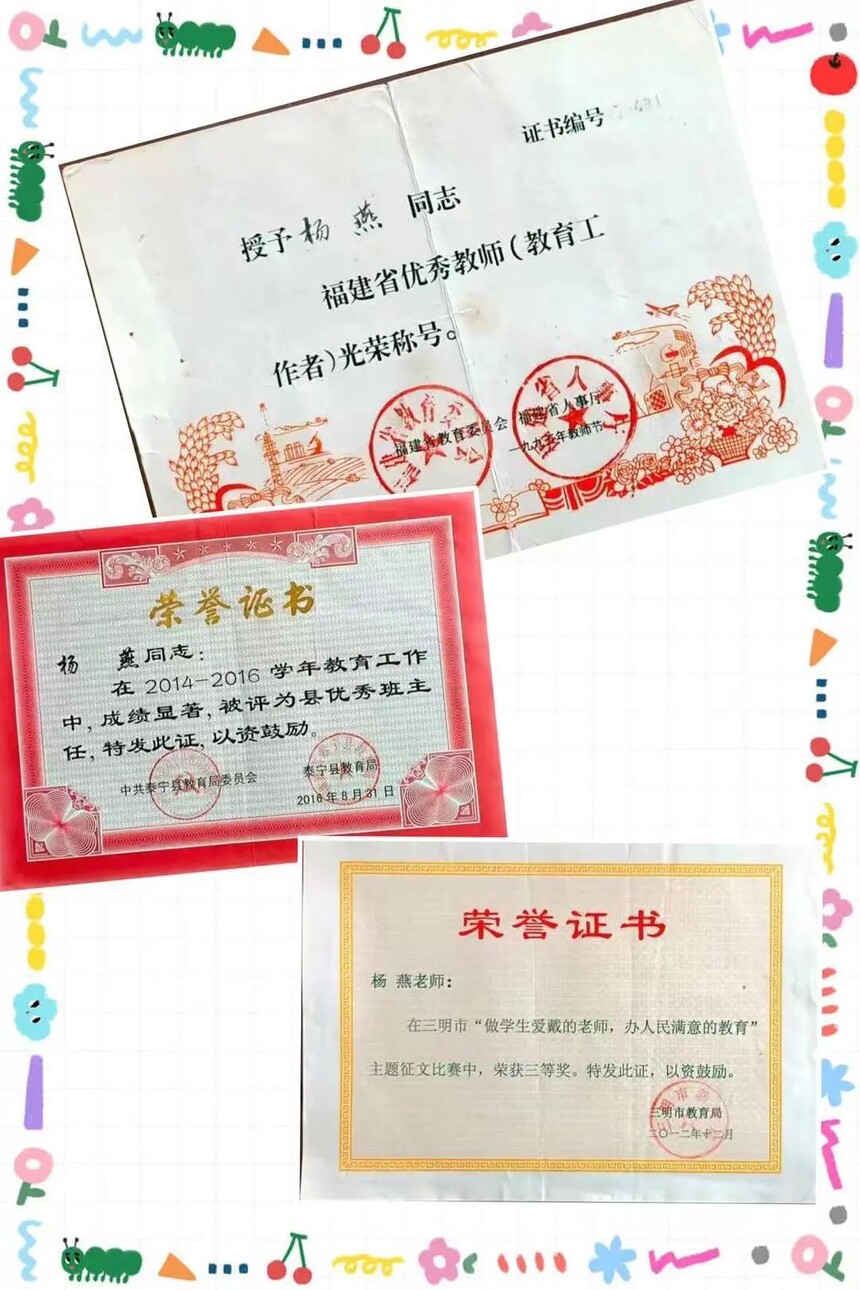 证书编号
授予杨 燕 同志
福建省优秀教师(教育工
作者)光荣称号。
福建省教育委员会 福建省人事厅
一九九五年教师节
荣誉证书
杨 燕同志:
在 2014-2016 学年教育工作
中,成绩显著,被评为县优秀班主
任,特发此证,以资鼓励。
中共泰宁县教育局委员会 泰宁县教育局
2016 年 8 月 31 日
荣誉证书
杨 燕老师:
在三明市“做学生爱戴的老师,办人民满意的教育”
主题征文比赛中,荣获三等奖。特发此证,以资鼓励。
三明市教育局
二〇一二年十二月